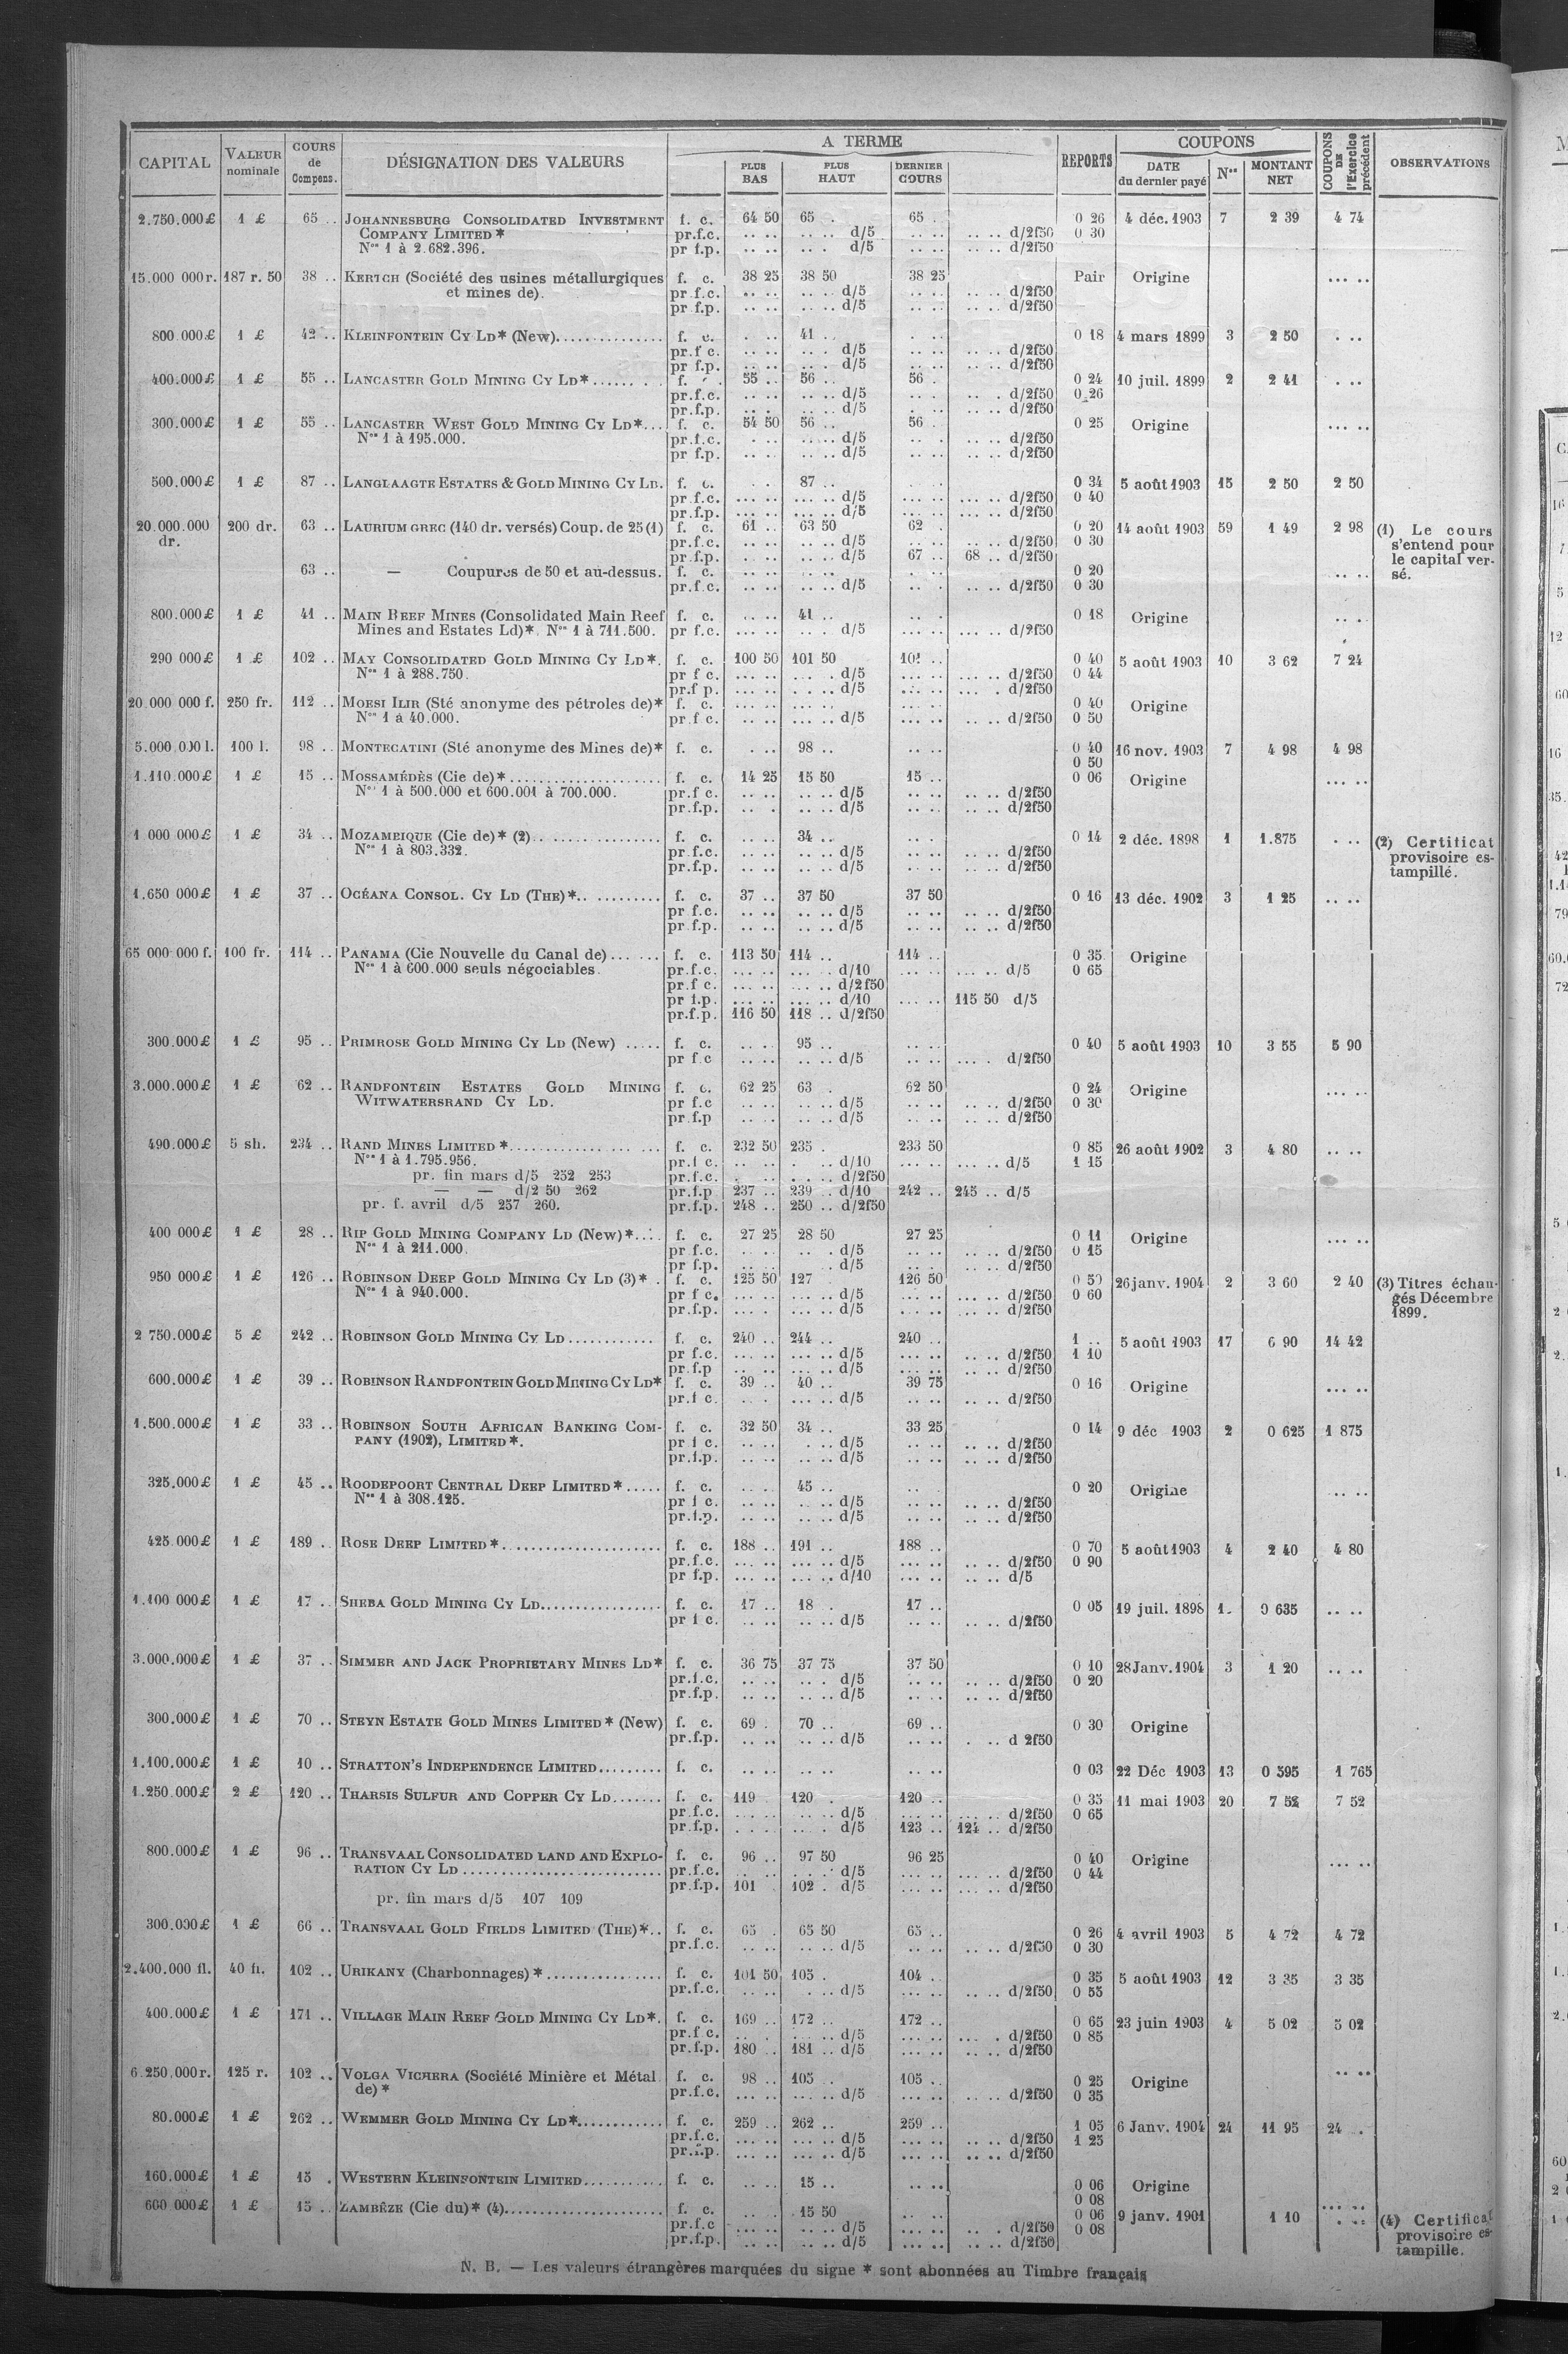 CAPITAL | VALEUR nominale | COURS de Compens. | DÉSIGNATION DES VALEURS | A TERME | PLUS BAS | PLUS HAUT | DERNIER COURS | REPORTS | COUPONS | DATE du dernier payé | Nos | MONTANT NET | COUPONS DE l'Exercice précédent | OBSERVATIONS
2.750.000£ 1 £ 65 .. JOHANNESBURG CONSOLIDATED INVESTMENT f. c. 64 50 65 . 65 . 0 26 4 déc. 1903 7 2 39 4 74
COMPANY LIMITED * pr.f.c. .. .. .. .. d/5 .. .. .. .. d/2f50 0 30
Nos 1 à 2.682.396. pr f.p. .. .. .. . d/5 .. .. .. .. d/2f50
15.000 000r. 187 r. 50 38 .. KERTCH (Société des usines métallurgiques f. c. 38 25 38 50 38 25 Pair Origine ... ..
et mines de). pr.f.c. .. .. .. .. d/5 .. .. .. .. d/2f50
pr f.p. .. .. .. .. d/5 .. .. .. .. d/2f50
800.000£ 1 £ 42 .. KLEINFONTEIN CY LD* (New)............... f. c. . .. 41 .. . .. 0 18 4 mars 1899 3 2 50 . ..
pr.f c. .. .. .. . d/5 .. .. .. .. d/2f50
pr f.p. .. .. .. .. d/5 .. .. .. .. d/2f50
400.000£ 1 £ 55 .. LANCASTER GOLD MINING CY LD*....... . . f. 55 .. 56 .. 56 . 0 24 10 juil. 1899 2 2 41 . ..
pr.f.c. .. .. .. .. d/5 .. .. .. . d/2f50 0 26
pr.f.p. .. . .. .. d/5 . .. .. .. d/2f50
300.000£ 1 £ 55 .. LANCASTER WEST GOLD MINING CY LD*... f. c. 54 50 56 .. 56 . 0 25 Origine ... ..
Nos 1 à 195.000. pr.f.c. . .. .. .. d/5 .. .. .. .. d/2f50
pr f.p. .. .. .. .. d/5 .. .. .. .. d/2f50
500.000£ 1 £ 87 .. LANGLAAGTE ESTATES & GOLD MINING CY LD. f. c. . . 87 .. . . 0 34 5 août 1903 15 2 50 2 50
pr f.c. ... .. ... .. d/5 ... .. ... .. d/2f50 0 40
pr.f.p. ... .. ... .. d/5 ... .. ... .. d/2f50
20.000.000 dr. 200 dr. 63 .. LAURIUM GREC (140 dr. versés) Coup. de 25 (1) f. c. 61 .. 63 50 62 . 0 20 14 août 1903 59 1 49 2 98 (1) Le cours
pr.f.c. .. .. .. .. d/5 .. .. .. .. d/2f50 0 30 s'entend pour
pr.f.p. .. .. .. .. d/5 67 .. 68 .. d/2f50 le capital ver-
63 .. — Coupures de 50 et au-dessus. f. c. .. .. .. .. . .. 0 20 .. .. sé.
pr.f.c. .. .. .. .. d/5 .. . .. .. d/2f50 0 30
800.000£ 1 £ 41 .. MAIN REEF MINES (Consolidated Main Reef f. c. .. .. 41 .. .. . 0 18 Origine .. .
Mines and Estates Ld)*. Nos 1 à 711.500. pr f.c. ... .. .. . d/5 ... .. ... .. d/2f50
290 000£ 1 £ 102 .. MAY CONSOLIDATED GOLD MINING CY LD*. f. c. 100 50 101 50 101 .. 0 40 5 août 1903 10 3 62 7 24
Nos 1 à 288.750. pr f c. ... .. .. . d/5 ... .. ... .. d/2f50 0 44
pr.f p. ... .. . . .. d/5 ... .. ... . d/2f50
20.000 000 f. 250 fr. 112 .. MOESI ILIR (Sté anonyme des pétroles de)* f. c. ... .. ... .. ... .. 0 40 Origine
Nos 1 à 40.000. pr.f c. .. .. ... .. d/5 ... .. .. .. d/2f50 0 50
5.000.000 l. 100 l. 98 .. MONTECATINI (Sté anonyme des Mines de)* f. c. . .. 98 .. .. .. 0 40 16 nov. 1903 7 4 98 4 98
0 50
1.110.000£ 1 £ 15 .. MOSSAMÉDÈS (Cie de)*..................... f. c. 14 25 15 50 15 .. 0 06 Origine ... ..
Nos 1 à 500.000 et 600.001 à 700.000. pr.f c. .. .. .. .. d/5 .. .. .. .. d/2f50
pr.f.p. .. . .. .. d/5 .. .. .. .. d/2f50
1 000 000£ 1 £ 34 .. MOZAMBIQUE (Cie de)* (2).................. f. c. .. .. 34 .. .. .. 0 14 2 déc. 1898 1 1.875 . .. (2) Certificat
Nos 1 à 803.332. pr.f.c. .. .. .. .. d/5 .. .. .. .. d/2f50 provisoire es-
pr.f.p. .. .. .. .. d/5 .. .. .. .. d/2f50 tampillé.
1.650 000£ 1 £ 37 .. OCÉANA CONSOL. CY LD (THE)*.. ......... f. c. 37 .. 37 50 37 50 0 16 13 déc. 1902 3 1 25 .. ..
pr f.c. .. .. .. .. d/5 .. .. .. .. d/2f50
pr f.p. .. .. .. .. d/5 .. .. .. .. d/2f50
65 000 000 f. 100 fr. 114 .. PANAMA (Cie Nouvelle du Canal de)... ... f. c. 113 50 114 .. 114 .. 0 35 Origine
Nos 1 à 600.000 seuls négociables. pr.f.c. ... .. ... .. d/10 ... .. ... .. d/5 0 65
pr.f c. ... .. ... .. d/2f50
pr f.p. ... .. ... .. d/10 ... .. 115 50 d/5
pr.f.p. 116 50 118 .. d/2f50
300.000£ 1 £ 95 .. PRIMROSE GOLD MINING CY LD (New) ..... f. c. .. . 95 .. .. .. 0 40 5 août 1903 10 3 55 5 90
pr f.c .. .. .. .. d/5 .. .. ... . d/2f50
3.000.000£ 1 £ 62 .. RANDFONTEIN ESTATES GOLD MINING f. c. 62 25 63 . 62 50 0 24 Origine ... ..
WITWATERSRAND CY LD. pr f.c .. .. .. .. d/5 .. .. .. .. d/2f50 0 30
pr.f.p .. .. .. .. d/5 .. .. .. .. d/2f50
490.000£ 5 sh. 234 .. RAND MINES LIMITED *............... ... ... f. c. 232 50 235 . 233 50 0 85 26 août 1902 3 4 80 .. ..
Nos 1 à 1.795.956. pr.f c. .. .. . .. d/10 ... .. ... .. d/5 1 15
pr. fin mars d/5 252 253 pr.f.c. . .. . . .. d/2f50
— — d/2 50 262 pr.f.p 237 .. 239 .. d/10 242 .. 245 .. d/5
pr. f. avril d/5 257 260. pr.f.p. 248 .. 250 .. d/2f50
400 000£ 1 £ 28 .. RIP GOLD MINING COMPANY LD (New)*.... f. c. 27 25 28 50 27 25 0 11 Origine ... ..
Nos 1 à 211.000. pr f.c. .. .. .. . d/5 .. .. .. .. d/2f50 0 15
pr f.p. .. .. d/5 .. .. .. .. d/2f50
950 000£ 1 £ 126 .. ROBINSON DEEP GOLD MINING CY LD (3)* . f. c. 125 50 127 126 50 0 50 26 janv. 1904 2 3 60 2 40 (3) Titres échan-
Nos 1 à 940.000. pr f c. ... .. ... .. d/5 ... .. ... .. d/2f50 0 60 gés Décembre
pr.f.p. ... .. ... .. d/5 ... .. ... .. d/2f50 1899.
2 750.000£ 5 £ 242 .. ROBINSON GOLD MINING CY LD ............ f. c. 240 .. 244 .. 240 .. 1 .. 5 août 1903 17 6 90 14 42
pr f.c. ... .. ... .. d/5 ... .. .. .. d/2f50 1 10
pr.f.p .. .. ... .. d/5 ... .. .. .. d/2f50
600.000£ 1 £ 39 .. ROBINSON RANDFONTEIN GOLD MINING CY LD* f. c. 39 .. 40 .. 39 75 0 16 Origine ... ..
pr.f c. .. . ... .. d/5 .. .. .. .. d/2f50
1.500.000£ 1 £ 33 .. ROBINSON SOUTH AFRICAN BANKING COM- f. c. 32 50 34 .. 33 25 0 14 9 déc 1903 2 0 625 1 875
PANY (1902), LIMITED*. pr f c. .. .. . .. d/5 .. .. .. .. d/2f50
pr.f.p. .. .. .. .. d/5 .. .. .. .. d/2f50
325.000£ 1 £ 45 .. ROODEPOORT CENTRAL DEEP LIMITED*..... f. c. .. . 45 .. .. 0 20 Origine .. ..
Nos 1 à 308.125. pr f c. .. .. .. .. d/5 .. .. .. .. d/2f50
pr.f.p. .. .. .. .. d/5 .. .. .. .. d/2f50
425.000£ 1 £ 189 . ROSE DEEP LIMITED*...................... f. c. 188 .. 191 .. 188 .. 0 70 5 août 1903 4 2 40 4 80
pr.f.c. ... .. ... .. d/5 ... .. .. .. d/2f50 0 90
pr f.p. ... .. ... .. d/10 ... .. .. .. d/5
1.100 000£ 1 £ 17 .. SHEBA GOLD MINING CY LD................. f. c. 17 .. 18 . 17 .. 0 05 19 juil. 1898 1. 0 635 .. ..
pr f c. .. .. ... .. d/5 .. .. .. .. d/2f50
3.000.000£ 1 £ 37 .. SIMMER AND JACK PROPRIETARY MINES LD* f. c. 36 75 37 75 37 50 0 10 28 Janv. 1904 3 1 20 .. ..
pr.f.c. .. .. .. . d/5 .. .. .. .. d/2f50 0 20
pr.f.p. .. .. .. .. d/5 .. .. .. .. d/2f50
300.000£ 1 £ 70 .. STEYN ESTATE GOLD MINES LIMITED* (New) f. c. 69 . 70 .. 69 .. 0 30 Origine
pr.f.p. .. .. .. .. d/5 .. .. . .. d 2f50
1.100.000£ 1 £ 10 .. STRATTON'S INDEPENDENCE LIMITED......... f. c. .. .. .. .. .. .. 0 03 22 Déc 1903 13 0 595 1 765
1.250.000£ 2 £ 120 .. THARSIS SULFUR AND COPPER CY LD....... f. c. 119 120 . 120 .. 0 35 11 mai 1903 20 7 52 7 52
pr.f.c. ... .. ... .. d/5 ... .. ... .. d/2f50 0 65
pr.f.p. . . .. ... . d/5 123 .. 124 .. d/2f50
800.000£ 1 £ 96 .. TRANSVAAL CONSOLIDATED LAND AND EXPLO- f. c. 96 .. 97 50 96 25 0 40 Origine ... ..
RATION CY LD .......................... pr.f.c. .. . .. . d/5 ... .. ... .. d/2f50 0 44
pr.f.p. 101 102 . d/5 ... .. ... .. d/2f50
pr. fin mars d/5 107 109
300.000£ 1 £ 66 .. TRANSVAAL GOLD FIELDS LIMITED (THE)*.. f. c. 65 . 65 50 65 .. 0 26 4 avril 1903 5 4 72 4 72
pr.f.c. .. .. .. .. d/5 .. .. .. .. d/2f50 0 30
2.400.000 fl. 40 fl. 102 .. URIKANY (Charbonnages)*................ f. c. 101 50 105 . 104 .. 0 35 5 août 1903 12 3 35 3 35
pr.f.c. .. .. . .. d/5 ... .. .. .. d/2f50 0 55
400.000£ 1 £ 171 .. VILLAGE MAIN REEF GOLD MINING CY LD*. f. c. 169 .. 172 .. 172 .. 0 65 23 juin 1903 4 5 02 5 02
pr.f c. .. . ... .. d/5 ... .. ... . d/2f50 0 85
pr.f.p. 180 .. 181 .. d/5 ... .. .. .. d/2f50
6.250.000r. 125 r. 102 .. VOLGA VICHERA (Société Minière et Métal. f. c. 98 .. 105 .. 105 .. 0 25 Origine .. ..
de)* pr.f.c. ... .. ... .. d/5 ... .. .. .. d/2f50 0 35
80.000£ 1 £ 262 .. WEMMER GOLD MINING CY LD*............ f. c. 259 .. 262 .. 259 .. 1 05 6 Janv. 1904 24 11 95 24 .
pr.f.c. ... .. ... .. d/5 ... .. .. .. d/2f50 1 25
pr.f.p. ... .. ... .. d/5 ... .. .. .. d/2f50
160.000£ 1 £ 15 . WESTERN KLEINFONTEIN LIMITED........... f. c. .. .. 15 .. .. .. 0 06 Origine
0 08
600 000£ 1 £ 15 .. ZAMBÈZE (Cie du)* (4)..................... f. c. .. . 15 50 .. .. 0 06 9 janv. 1901 1 10 . .. (4) Certificat
pr.f.c ... .. .. .. d/5 ... .. .. . d/2f50 0 08 provisoire es-
pr.f.p. .. .. .. .. d/5 ... .. .. .. d/2f50 tampille.
N. B. — Les valeurs étrangères marquées du signe * sont abonnées au Timbre français